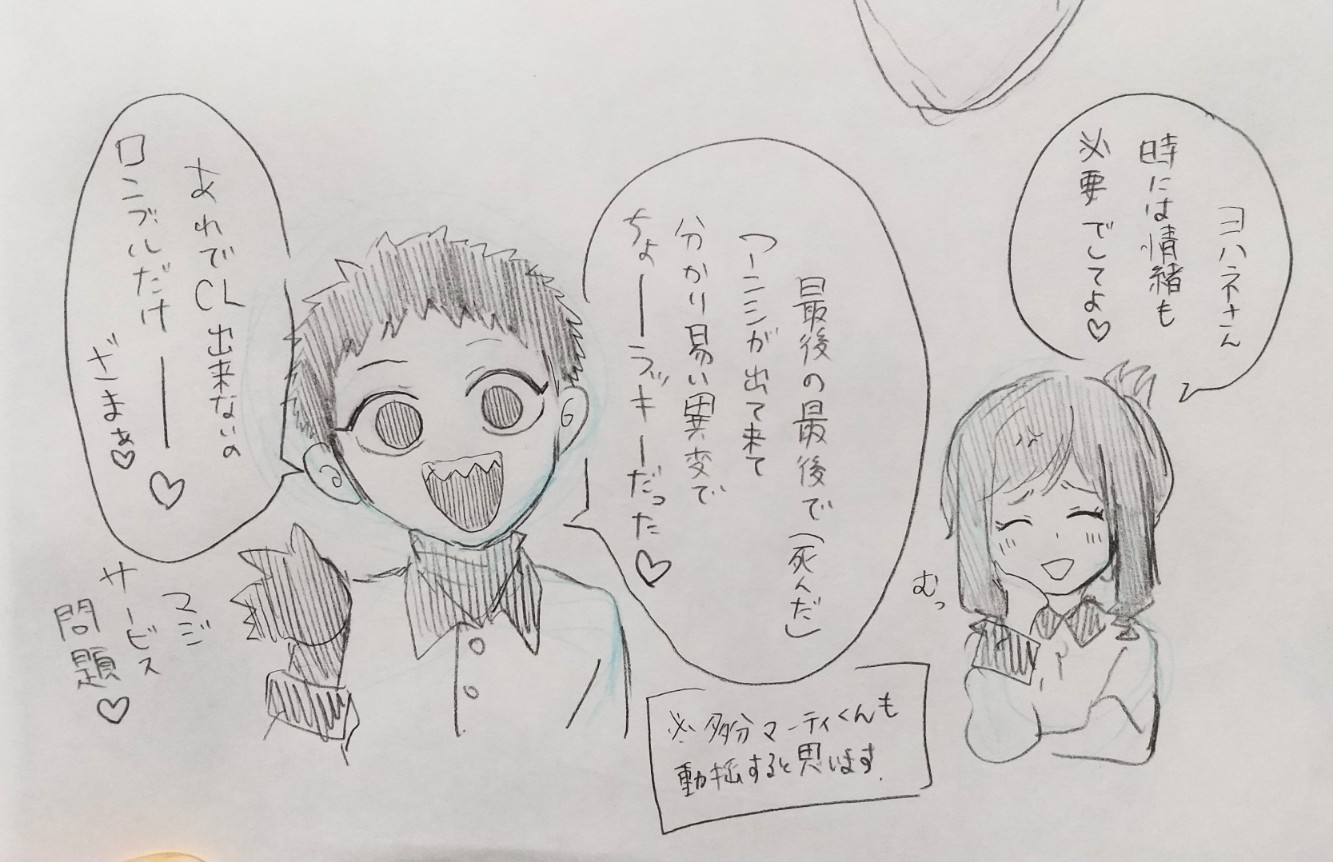 ヨハネさん
時には情緒も
必要でしてよ♡
むっ
最後の最後で(死んだ)
ワーニシが出て来て
分かり易い異変で
ちょーーラッキーだった♡
あれでCL出来ないの
ロンブルだけーー♡
ざまぁ♡
マジ
サービス
問題♡
※多分マーティくんも
動揺すると思います.